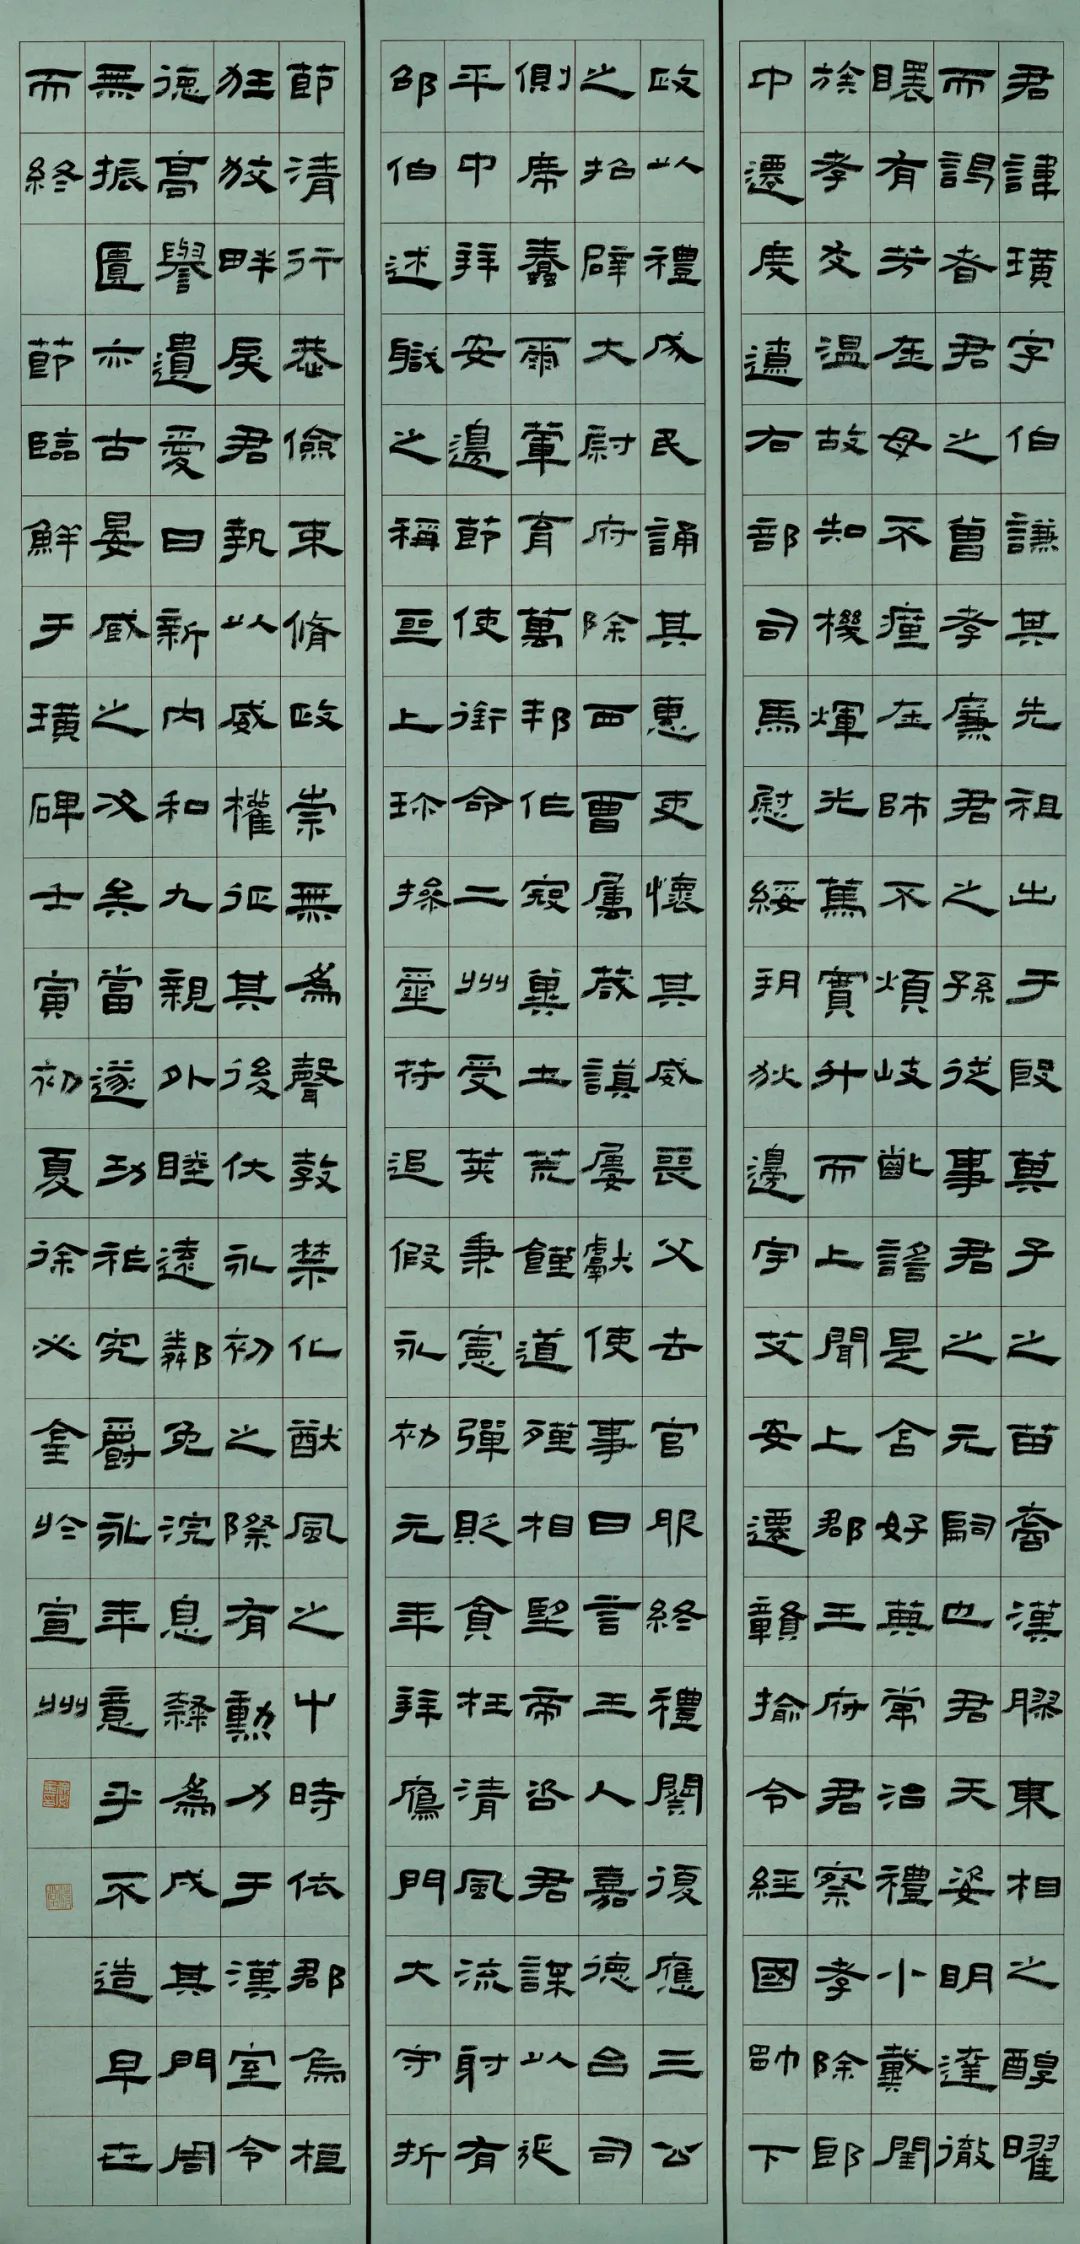 君諱璜字伯謙其先祖出于殷箕子之苗裔漢膠東相之醇曜
而謁者君之曾孝廉君之孫從事君之元嗣也君天姿明達徹
䁵有芳在母不瘇在師不煩岐齔謠是含好典常治禮小戴閨
族孝友溫故知機煇光篤實升而上聞上郡王府君察孝除郎
中遷度遼右部司馬慰綏朔狄邊宇艾安遷贛揄令經國帥下
政以禮成民誦其惠吏懷其威喪父去官服終禮闋復應三公
之招辟大尉府除西曹屬葳謨屢獻使事日言王人嘉德台司
側席蠢爾葷育萬邦作寇冀土荒饉道殣相望帝咨君謀以延
平中拜安邊節使銜命二州受莢秉憲彈貶貪枉清風流射有
邵伯述職之稱亟上珎操璽符追假永初元年拜鴈門大守折
節清行恭儉束脩政崇無為聲敦禁化猷風之中時依郡烏桓
狂狡畔戾君執以威權征其後伏永初之際有勳力于漢室令
德高譽遺愛日新內和九親外睦遠鄰免浣息隸為成其門周
無振匱亦古晏臧之次矣當遂功祚究爵永年意乎不造早世
而終 節臨鮮于璜碑壬寅初夏徐必奎於宣州